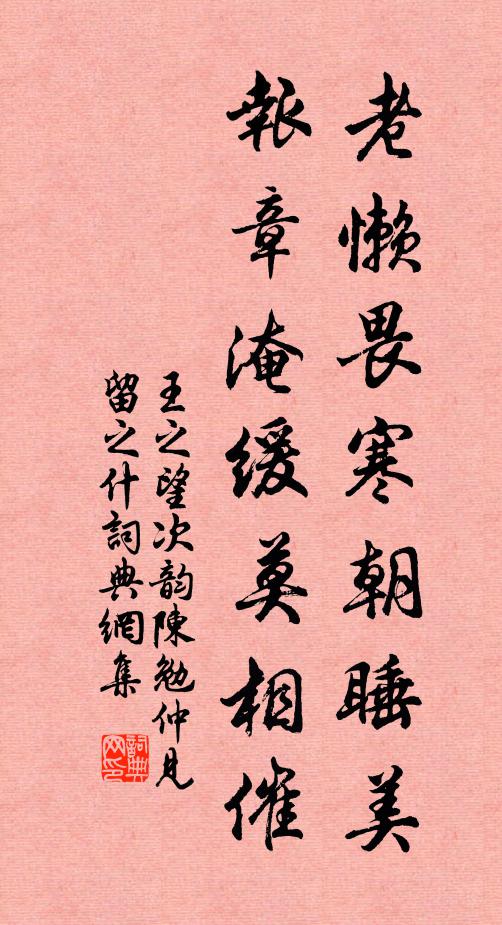 老懶畏寒朝睡美
報章淹緩莫相催
王之望次韵陳勉仲見
留之什詞典網集
詞典
网印